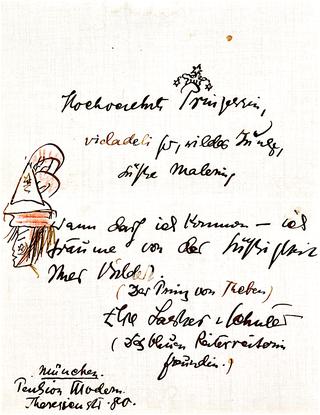 Hochverehrte Prinzessin,
wilder Junge,
süße Malerin,
Wann darf ich kommen – ich
träume von der Süßigkeit
Ihrer Bilder.
(Der Prinz von Theben)
Else Lasker-Schüler
(Des blauen Reiterreiterin
Freundin.)
München.
Pension Modern.
Theresienstr. 80.